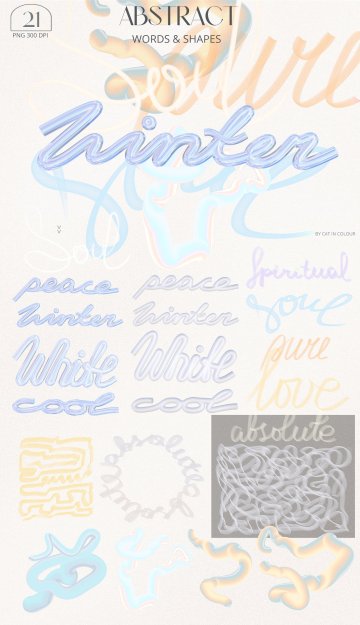 21
PNG 300 DPI
ABSTRACT
WORDS & SHAPES
Soul
pure
Winter
BY CAT IN COLOUR
Soul
peace
peace
Spiritual
Winter
Winter
soul
White
White
pure
cool
cool
love
absolute
absolute